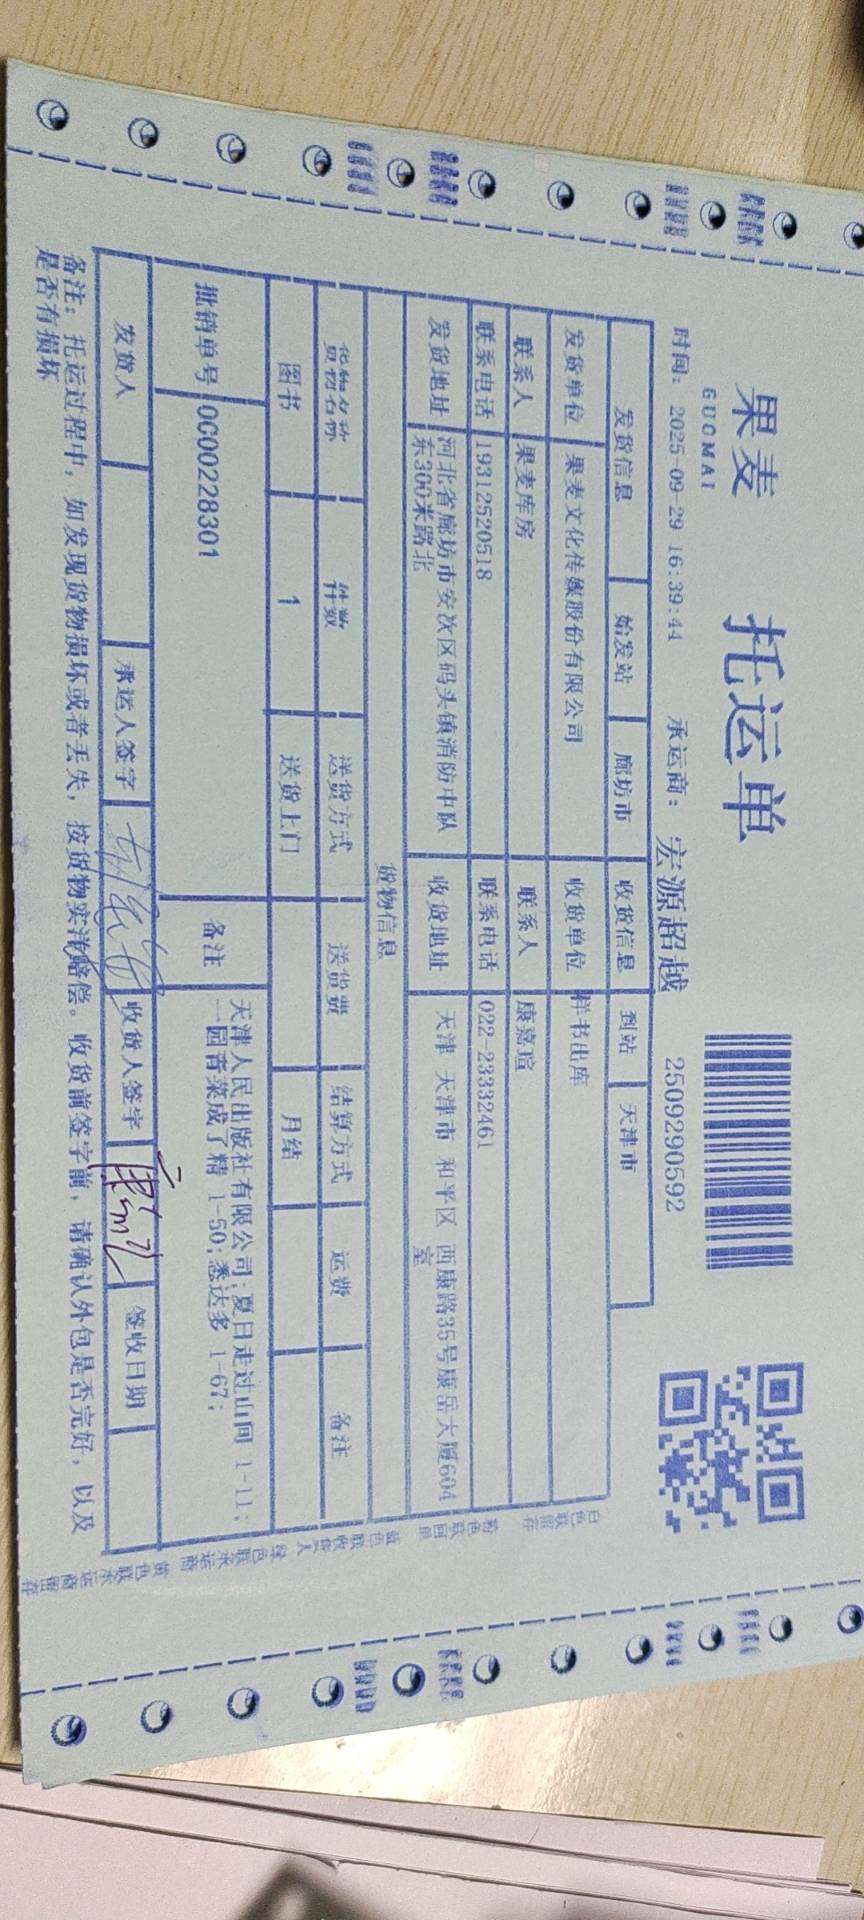 果麦
GUOMAI
托运单
时间：2025-09-29 16:39:44 承运商：宏源超越 2509290592
发货信息 始发站 廊坊市 收货信息 到站 天津市
发货单位 果麦文化传媒股份有限公司 收货单位 样书出库
联系人 果麦库房 联系人 康嘉瑄
联系电话 19312520518 联系电话 022-23332461
发货地址 河北省廊坊市安次区码头镇消防中队
东300米路北
收货地址 天津 天津市 和平区 西康路35号康岳大厦604
室
货物信息
货物名称 件数 送货方式 送货费 结算方式 运费 备注
图书 1 送货上门 月结
批销单号 0C00228301 备注 天津人民出版社有限公司;夏日走过山间 1-11;
一园青菜成了精 1-50;悉达多 1-67;
发货人 承运人签字 收货人签字 签收日期
备注：托运过程中，如发现货物损坏或者丢失，按货物实洋赔偿。收货前签字前，请确认外包是否完好，以及
是否有损坏
白色联留存 粉色联回单 蓝色联收货人 绿色联承运商 黄色联承运商留存